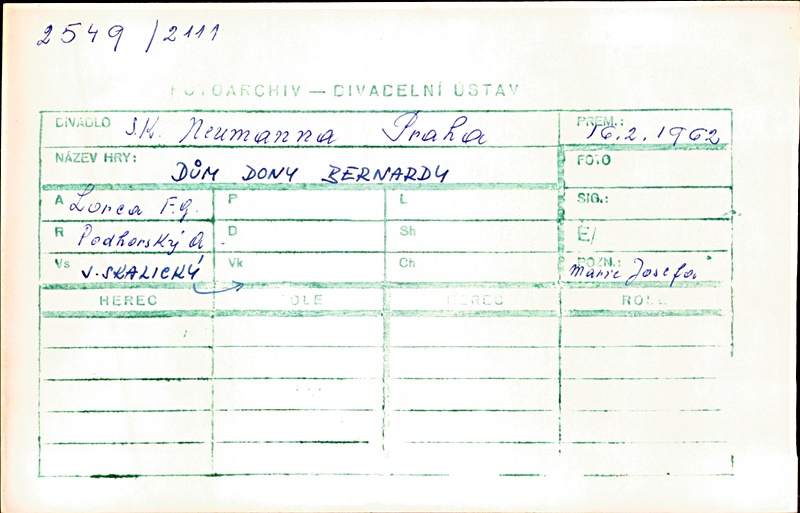 2549 /2111
FOTOARCHIV — DIVADELNÍ ÚSTAV
DIVADLO S.K. Neumanna Praha PREM.: 16.2.1962
NÁZEV HRY: DŮM DONY BERNARDY FOTO
A Lorca F.G. P L SIG.:
R Podhorský A. D Sh Č/
Vs V. SKALICKÝ Vk Ch POZN.: Marie Josefa
HEREC ROLE HEREC ROLE